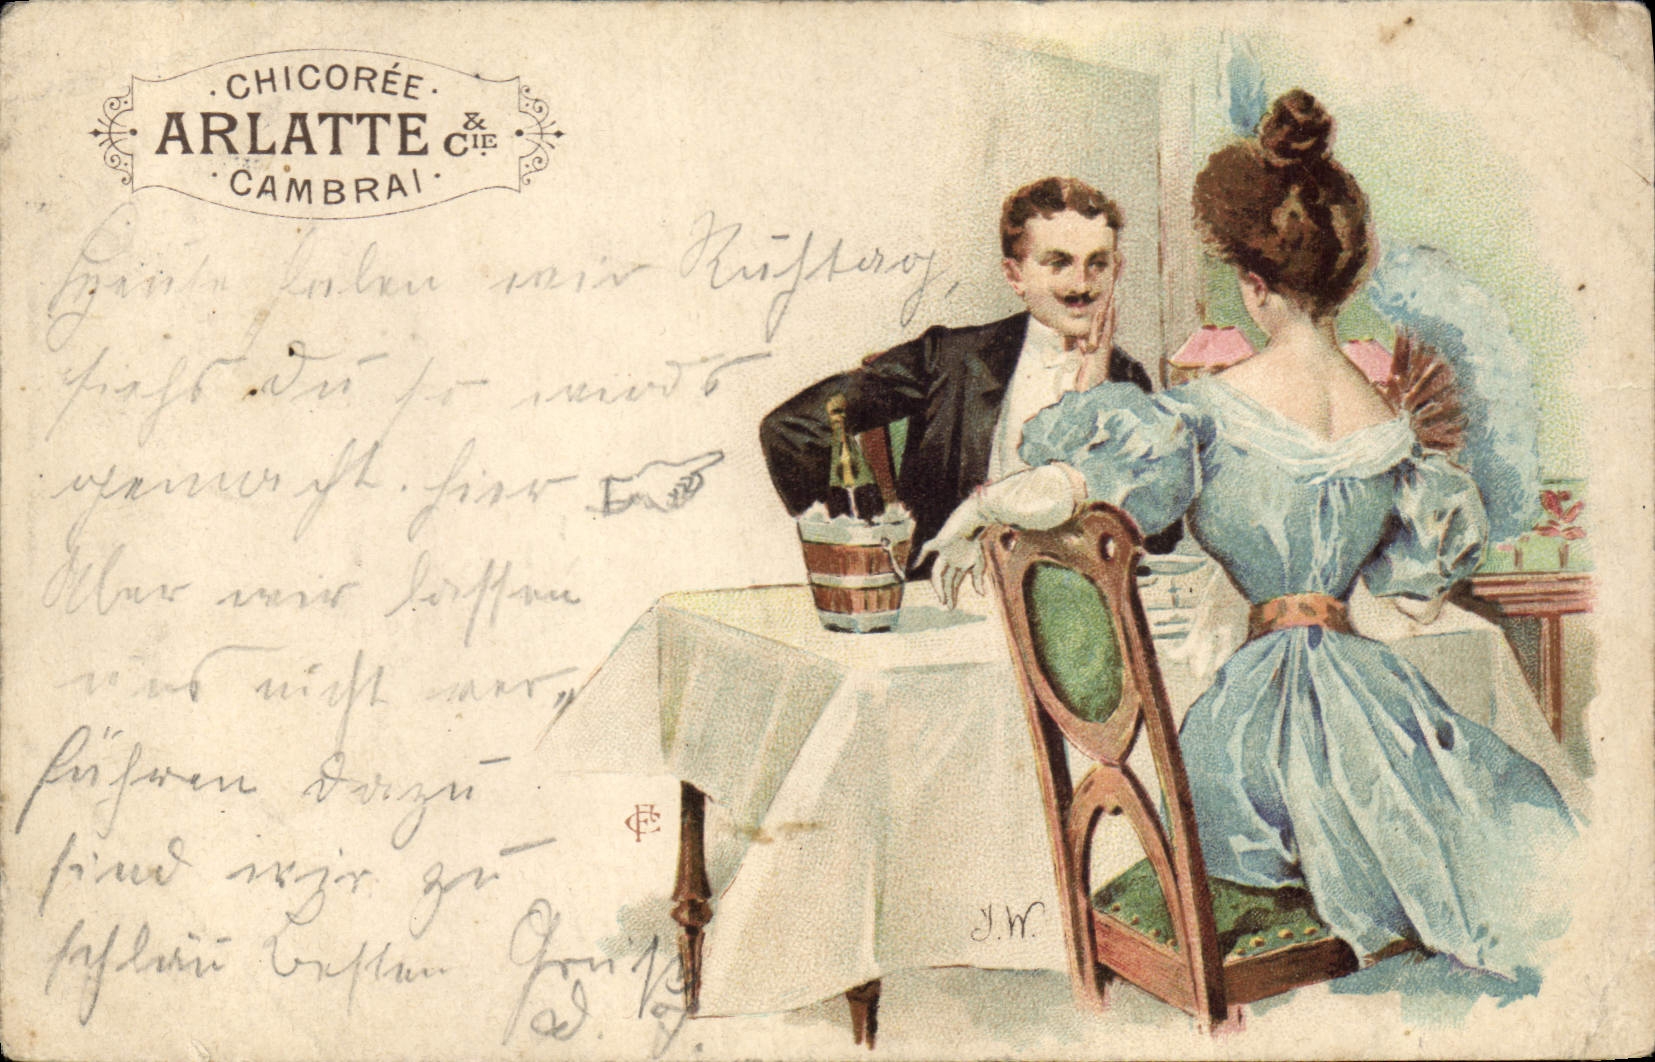 · CHICORÉE ·
ARLATTE & CIE
· CAMBRAI ·
Heute haben wir Ruhtag,
siehs du so wirds
gemacht. hier
Aber wir lassen
uns nicht ver„
führen dazu
sind wir zu
schlau besten Gruß
J.W.